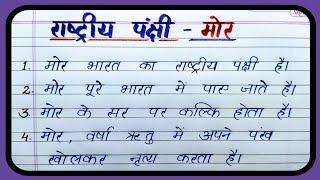 राष्ट्रीय पंक्षी - मोर
1. मोर भारत का राष्ट्रीय पंक्षी है।
2. मोर पूरे भारत में पाए जाते है।
3. मोर के सर पर कल्कि होता है।
4. मोर, वर्षा ऋतु में अपने पंख
खोलकर नृत्य करता है।